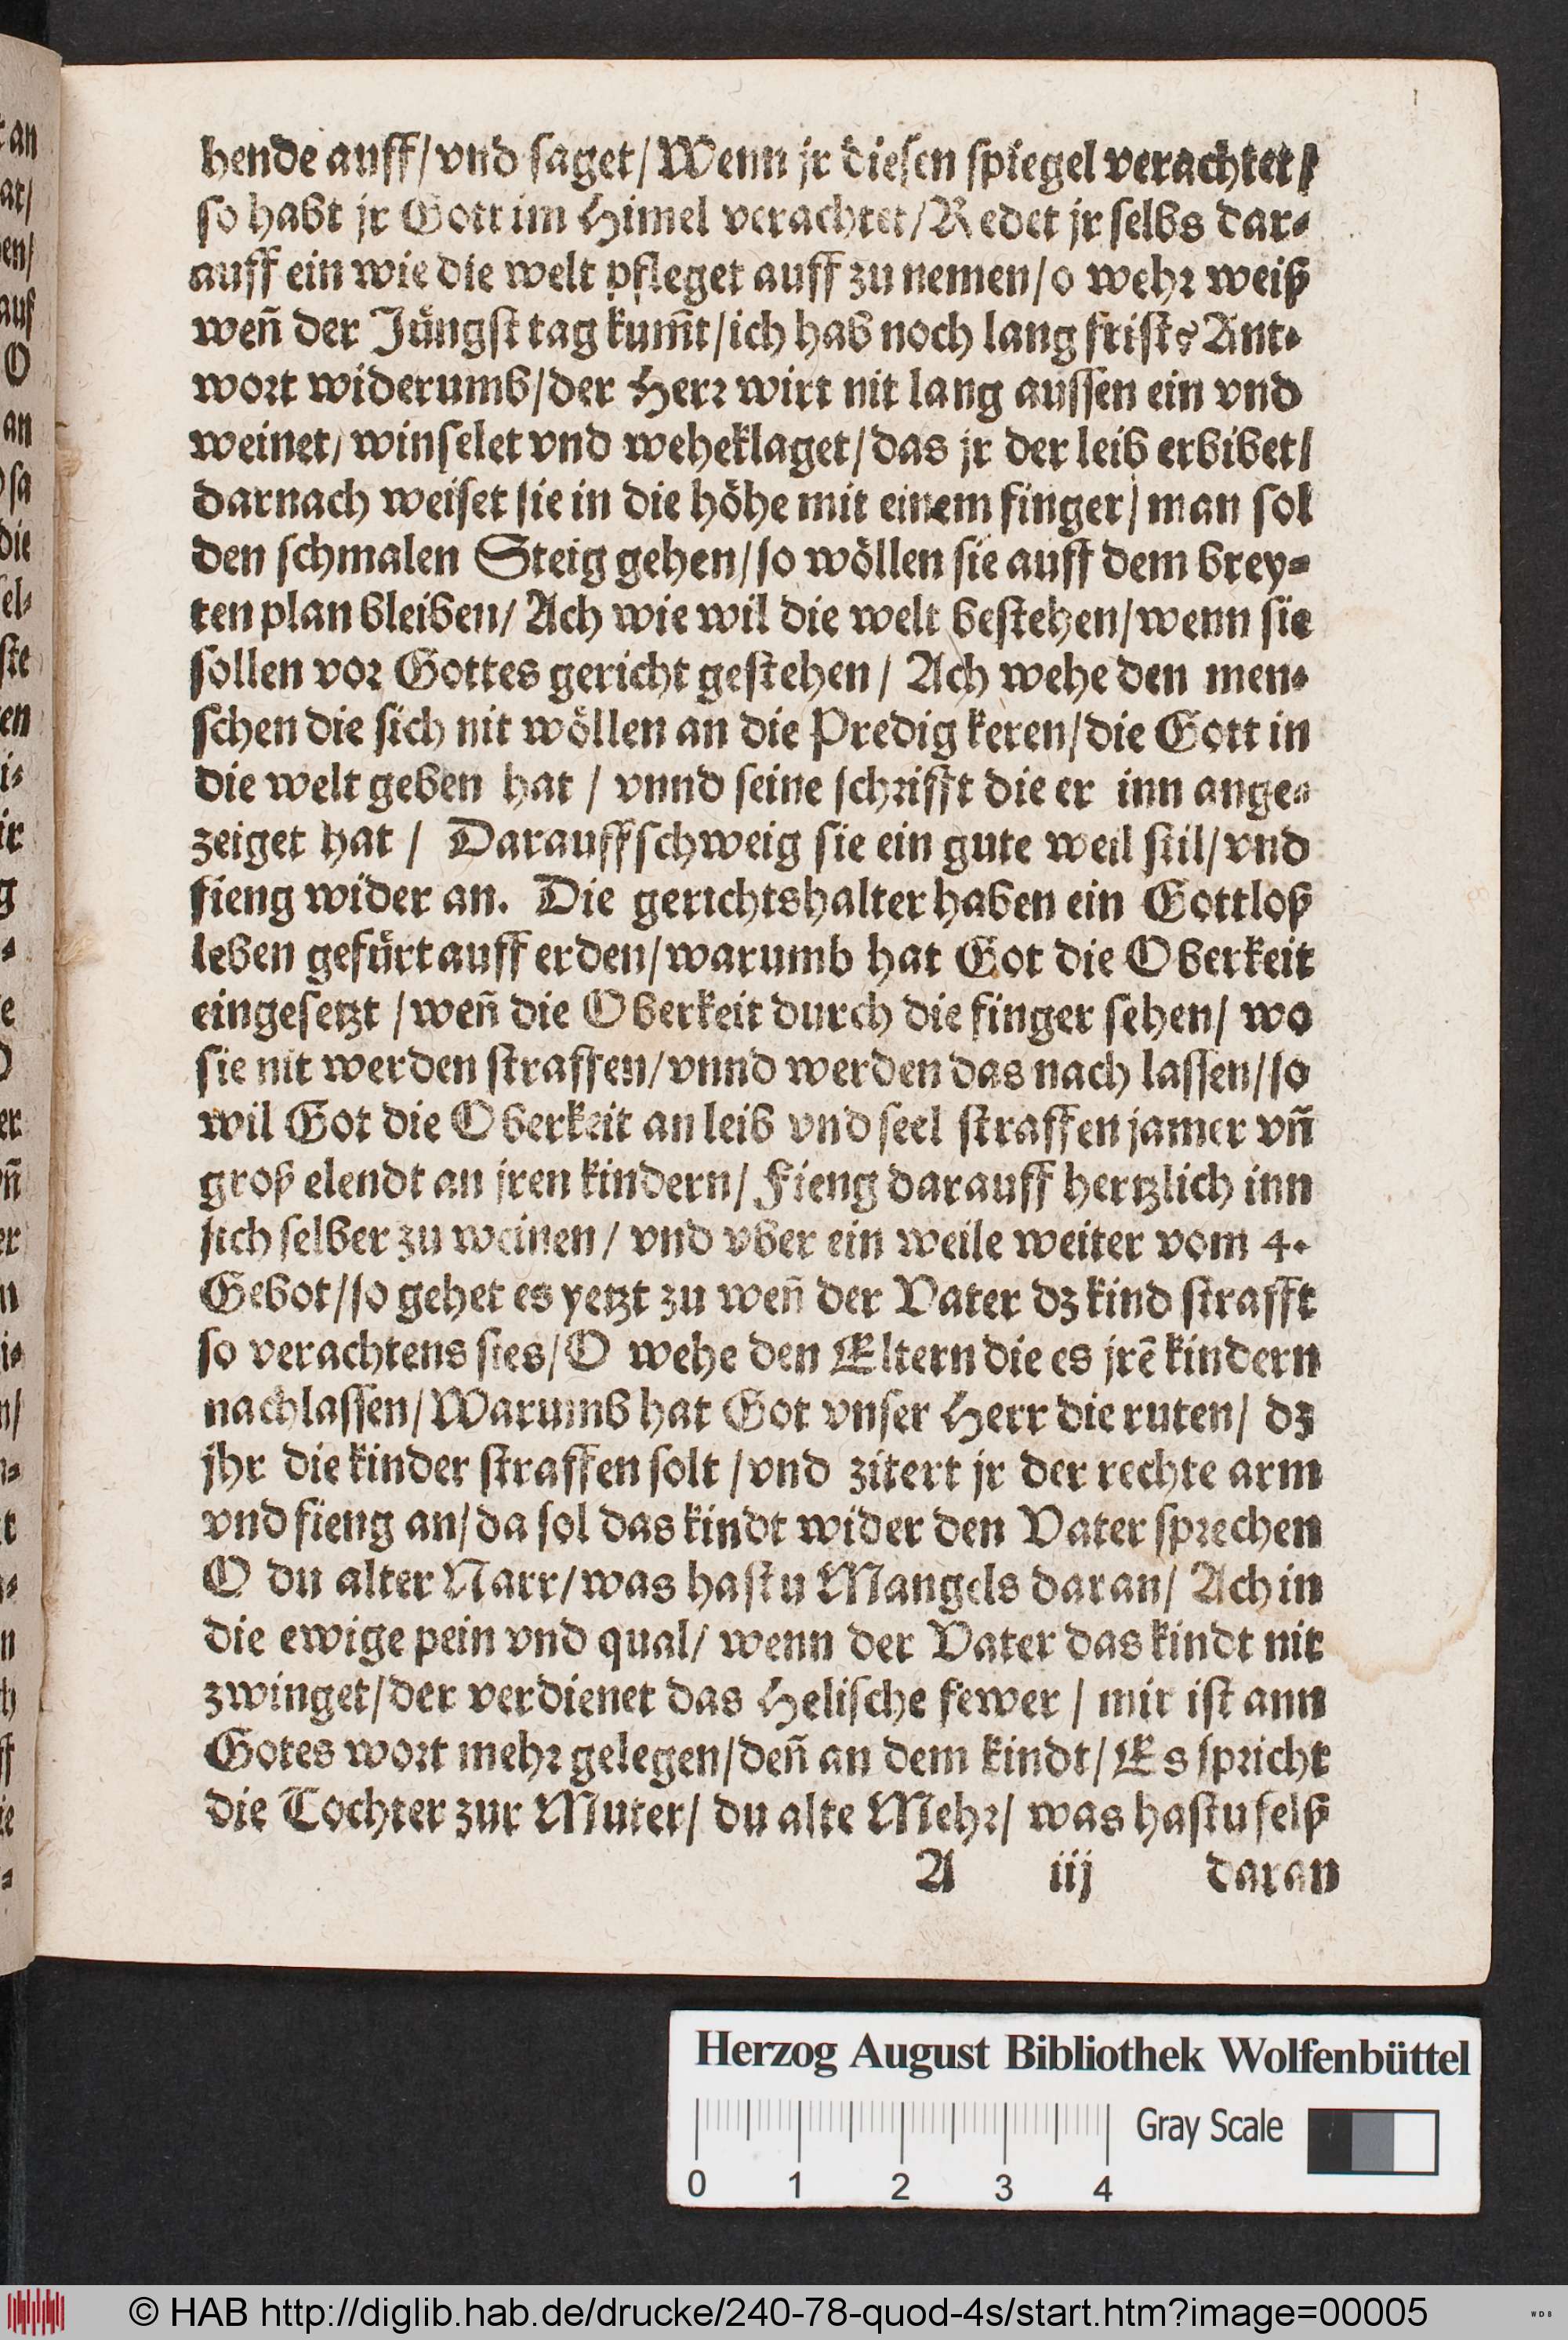 hende auff/vnd saget/Wenn jr diesen spiegel verachtet/
so habt jr Gott im Himel verachtet/Redet jr selbs dar⸗
auff ein wie die welt pfleget auff zu nemen/o wehr weiß
weñ der Jüngst tag kum̃t/ich hab noch lang frist? Ant⸗
wort widerumb/der Herr wirt nit lang aussen ein vnd
weinet/winselet vnd weheklaget/das jr der leib erbibet/
darnach weiset sie in die höhe mit einem finger/man sol
den schmalen Steig gehen/so wöllen sie auff dem brey⸗
ten plan bleiben/Ach wie wil die welt bestehen/wenn sie
sollen vor Gottes gericht gestehen/ Ach wehe den men⸗
schen die sich nit wöllen an die Predig keren/die Gott in
die welt geben hat / vnnd seine schrifft die er inn ange⸗
zeiget hat / Darauff schweig sie ein gute weil stil/vnd
fieng wider an. Die gerichtshalter haben ein Gottloß
leben gefürt auff erden/warumb hat Got die Oberkeit
eingesetzt /weñ die Oberkeit durch die finger sehen/ wo
sie nit werden straffen/vnnd werden das nach lassen/so
wil Got die Oberkeit an leib vnd seel straffen jamer vñ
groß elendt an jren kindern/ Fieng darauff hertzlich inn
sich selber zu weinen/ vnd vber ein weile weiter vom 4.
Gebot/so gehet es yetzt zu weñ der Vater dz kind strafft
so verachtens sies/O wehe den Eltern die es jrẽ kindern
nachlassen/Warumb hat Got vnser Herr die ruten/ dz
jhr die kinder straffen solt /vnd zitert jr der rechte arm
vnd fieng an/da sol das kindt wider den Vater sprechen
O du alter Narr/was hastu Mangels daran/ Ach in
die ewige pein vnd qual/ wenn der Vater das kindt nit
zwinget/der verdienet das Helische fewer / mir ist ann
Gotes wort mehr gelegen/deñ an dem kindt/Es spricht
die Tochter zur Muter/ du alte Mehr/ was hastu felß
A iij daran
Herzog August Bibliothek Wolfenbüttel
Gray Scale
0 1 2 3 4
© HAB http://diglib.hab.de/drucke/240-78-quod-4s/start.htm?image=00005